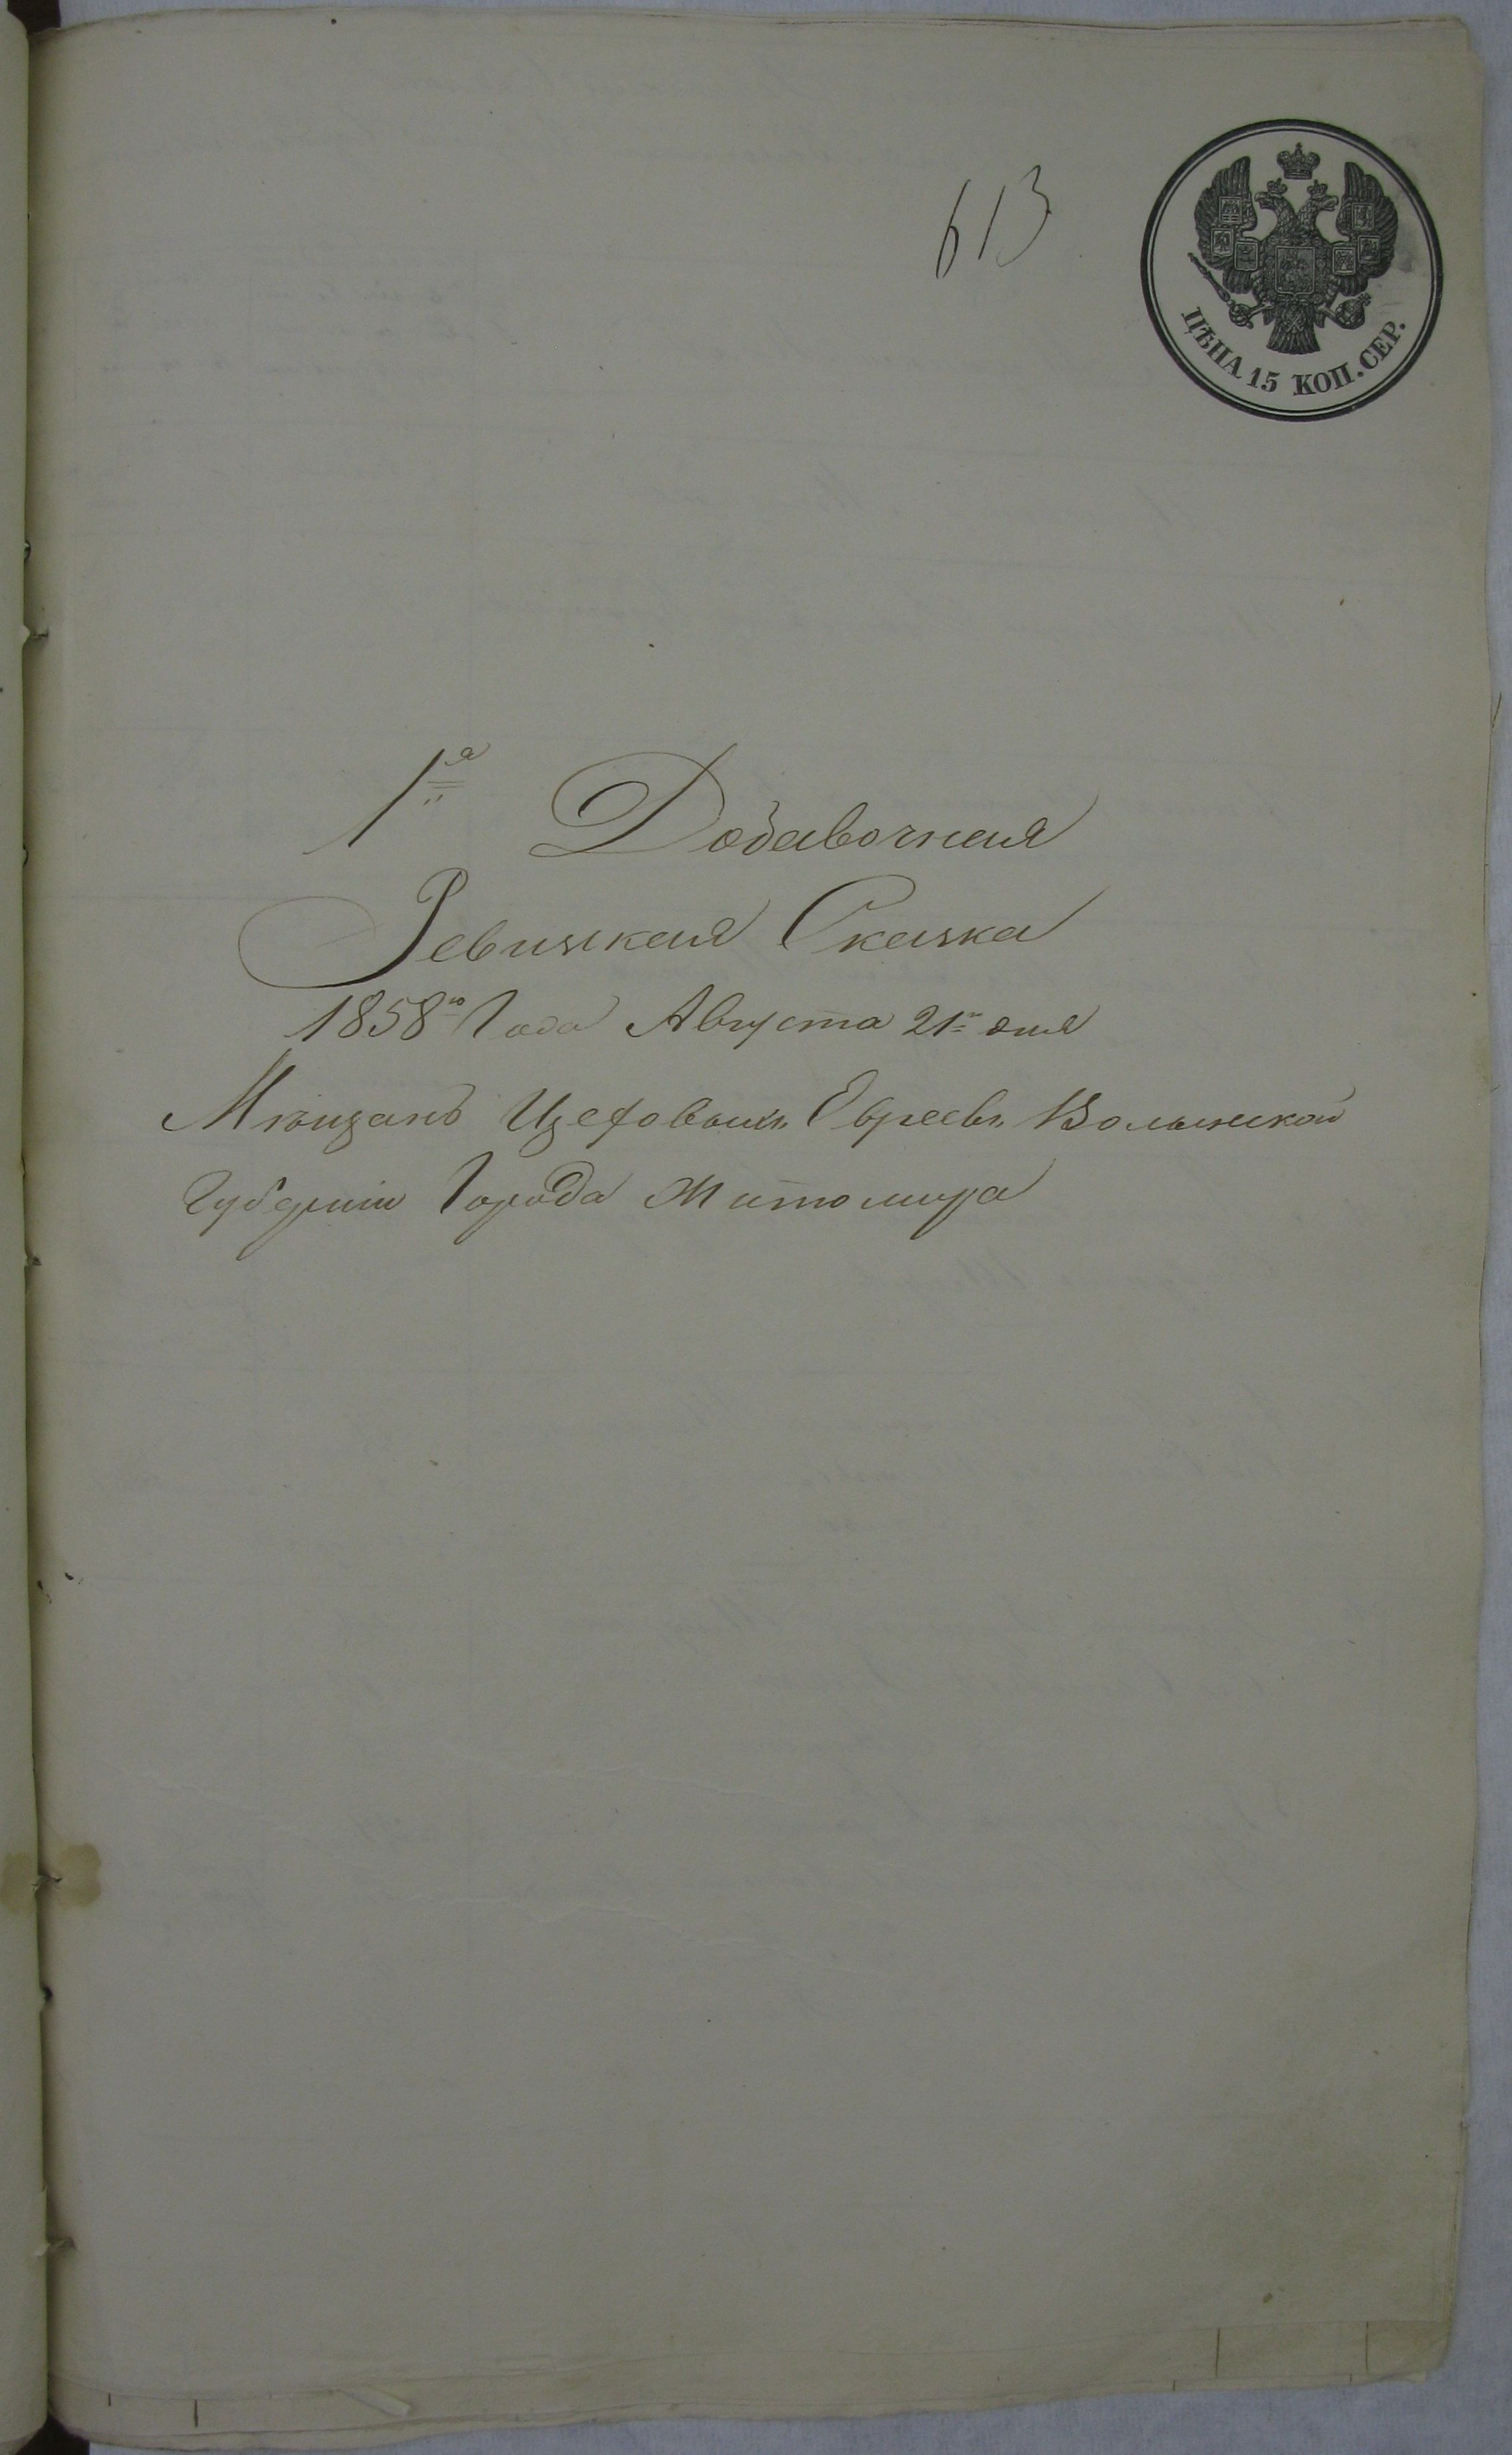 613
ЦѢНА 15 КОП. СЕР.
1я Добавочная
Ревизская Сказка
1858го Года Августа 21го дня
Мѣщанъ Цеховыхъ Евреевъ Волынской
Губерніи Города Житомира